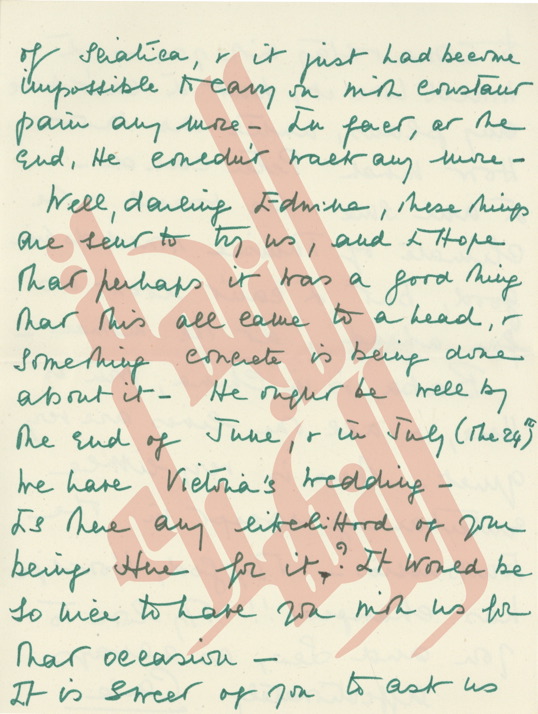 of Sciatica, & it just had become
impossible to carry on with constant
pain any more – In fact, at the
end, He couldn't walk any more –
Well, darling Edwina, these things
are sent to try us, and I Hope
that perhaps it was a good thing
that this all came to a head, &
something concrete is being done
about it – He ought be well by
the end of June, & in July (the 24th)
we have Victoria's wedding –
Is there any likelihood of your
being Here for it? It would be
so nice to have you with us for
that occasion –
It is Sweet of you to ask us